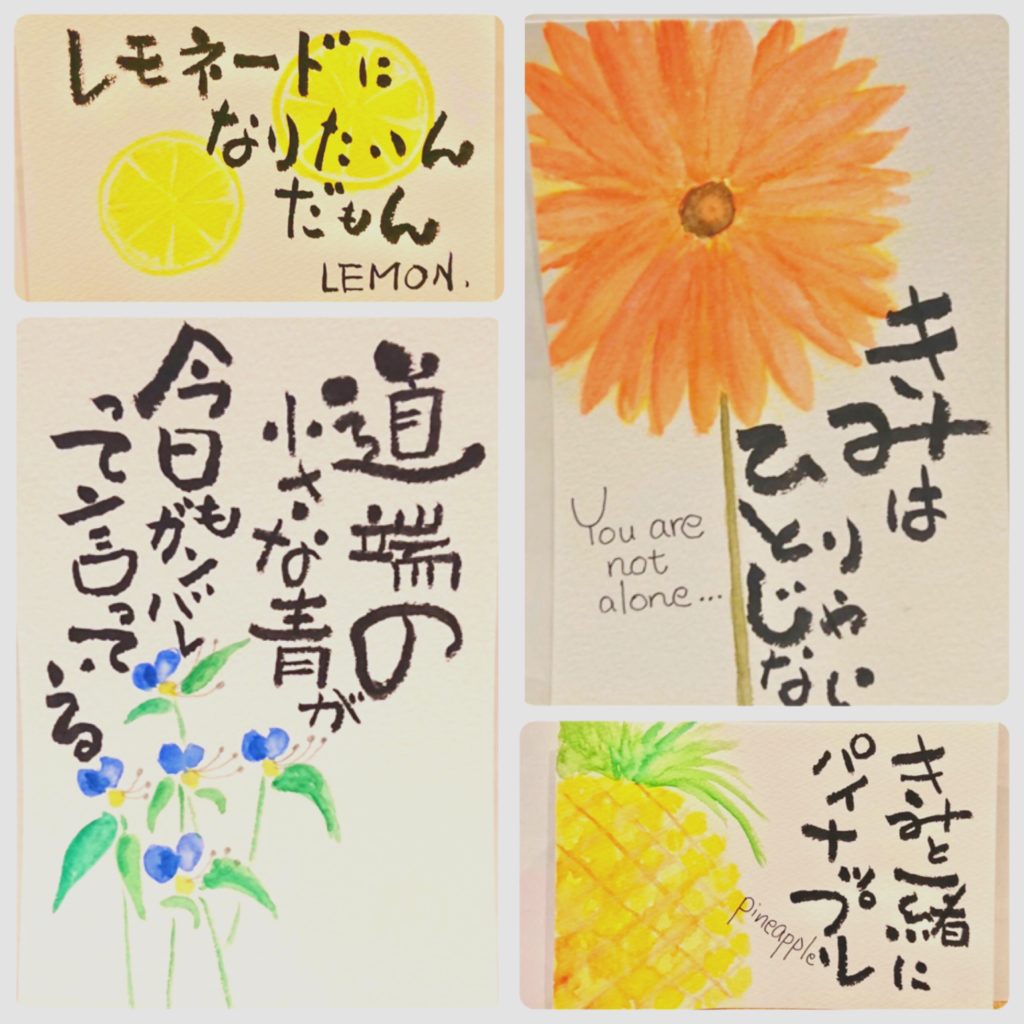 レモネードに
なりたいん
だもん
LEMON.
きみは
ひとりじゃない
You are
not
alone...
道端の
小さな青が
今日もガンバル
って言っている
きみと一緒に
パイナップル
pineapple